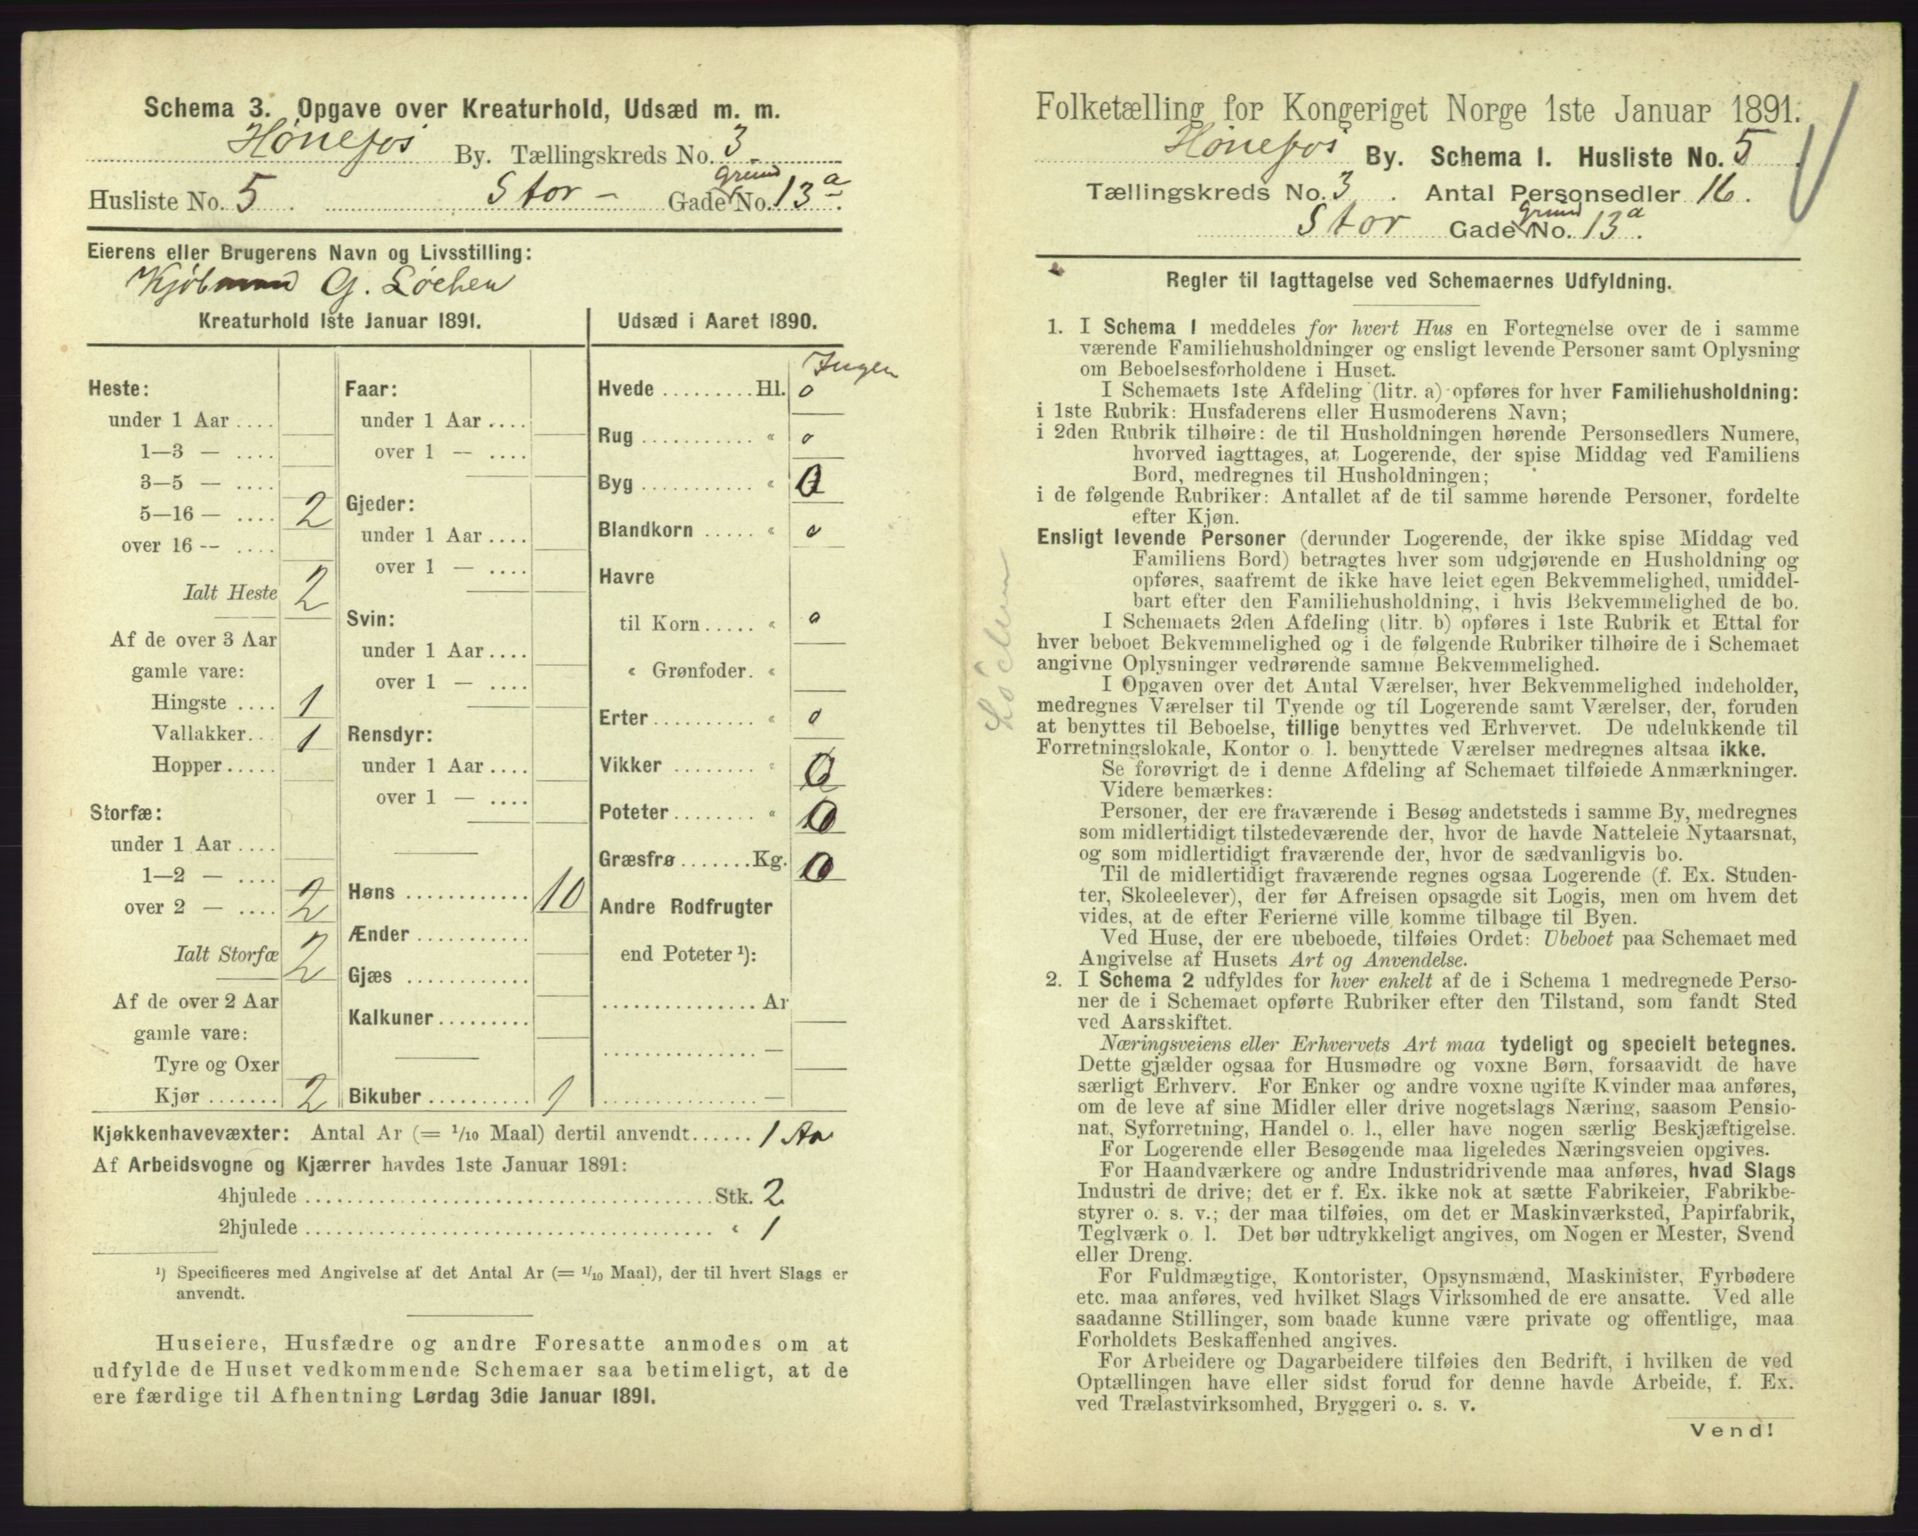 Schema 3. Opgave over Kreaturhold, Udsæd m. m.
Hønefos By. Tællingskreds No. 3
Husliste No. 5. Stor - Gade Grund No. 13a.
Eierens eller Brugerens Navn og Livsstilling:
Kjøbmand G. Løchen
Kreaturhold 1ste Januar 1891.
Heste:
under 1 Aar ....
1—3 — ....
3—5 — ....
5—16 — .... 2
over 16 -- ....
Ialt Heste 2
Af de over 3 Aar
gamle vare:
Hingste .... 1
Vallakker.. 1
Hopper.....
Storfæ:
under 1 Aar ....
1—2 — ....
over 2 — .... 2
Ialt Storfæ 2
Af de over 2 Aar
gamle vare:
Tyre og Oxer
Kjør ....... 2
Faar:
under 1 Aar ....
over 1 — ....
Gjeder:
under 1 Aar ....
over 1 — ....
Svin:
under 1 Aar ....
over 1 — ....
Rensdyr:
under 1 Aar ....
over 1 — ....
Høns ............ 10
Ænder ...........
Gjæs ............
Kalkuner.........
Bikuber .......... 1
Udsæd i Aaret 1890.
Ingen
Hvede ......... Hl. 0
Rug ........... " 0
Byg ........... " 0
Blandkorn ..... " 0
Havre
til Korn..... " 0
" Grønfoder. "
Erter.......... " 0
Vikker ........ " 0
Poteter........ " 0
Græsfrø .......Kg. 0
Andre Rodfrugter
end Poteter ¹):
............... Ar
............... —
............... —
Kjøkkenhavevæxter: Antal Ar (= 1/10 Maal) dertil anvendt...... 1 Ar
Af Arbeidsvogne og Kjærrer havdes 1ste Januar 1891:
4hjulede ........................................ Stk. 2
2hjulede ........................................ " 1
¹) Specificeres med Angivelse af det Antal Ar (= 1/10 Maal), der til hvert Slags er
anvendt.
Huseiere, Husfædre og andre Foresatte anmodes om at
udfylde de Huset vedkommende Schemaer saa betimeligt, at de
ere færdige til Afhentning Lørdag 3die Januar 1891.
Løchen
Folketælling for Kongeriget Norge 1ste Januar 1891.
Hønefos By. Schema 1. Husliste No. 5.
Tællingskreds No. 3. Antal Personsedler 16.
Stor Gade Grund No. 13a.
Regler til Iagttagelse ved Schemaernes Udfyldning.
1. I Schema 1 meddeles for hvert Hus en Fortegnelse over de i samme
værende Familiehusholdninger og ensligt levende Personer samt Oplysning
om Beboelsesforholdene i Huset.
I Schemaets 1ste Afdeling (litr. a) opføres for hver Familiehusholdning:
i 1ste Rubrik: Husfaderens eller Husmoderens Navn;
i 2den Rubrik tilhøire: de til Husholdningen hørende Personsedlers Numere,
hvorved iagttages, at Logerende, der spise Middag ved Familiens
Bord, medregnes til Husholdningen;
i de følgende Rubriker: Antallet af de til samme hørende Personer, fordelte
efter Kjøn.
Ensligt levende Personer (derunder Logerende, der ikke spise Middag ved
Familiens Bord) betragtes hver som udgjørende en Husholdning og
opføres, saafremt de ikke have leiet egen Bekvemmelighed, umiddel-
bart efter den Familiehusholdning, i hvis Bekvemmelighed de bo.
I Schemaets 2den Afdeling (litr. b) opføres i 1ste Rubrik et Ettal for
hver beboet Bekvemmelighed og i de følgende Rubriker tilhøire de i Schemaet
angivne Oplysninger vedrørende samme Bekvemmelighed.
I Opgaven over det Antal Værelser, hver Bekvemmelighed indeholder,
medregnes Værelser til Tyende og til Logerende samt Værelser, der, foruden
at benyttes til Beboelse, tillige benyttes ved Erhvervet. De udelukkende til
Forretningslokale, Kontor o. l. benyttede Værelser medregnes altsaa ikke.
Se forøvrigt de i denne Afdeling af Schemaet tilføiede Anmærkninger.
Videre bemærkes:
Personer, der ere fraværende i Besøg andetsteds i samme By, medregnes
som midlertidigt tilstedeværende der, hvor de havde Natteleie Nytaarsnat,
og som midlertidigt fraværende der, hvor de sædvanligvis bo.
Til de midlertidigt fraværende regnes ogsaa Logerende (f. Ex. Studen-
ter, Skoleelever), der før Afreisen opsagde sit Logis, men om hvem det
vides, at de efter Ferierne ville komme tilbage til Byen.
Ved Huse, der ere ubeboede, tilføies Ordet: Ubeboet paa Schemaet med
Angivelse af Husets Art og Anvendelse.
2. I Schema 2 udfyldes for hver enkelt af de i Schema 1 medregnede Perso-
ner de i Schemaet opførte Rubriker efter den Tilstand, som fandt Sted
ved Aarsskiftet.
Næringsveiens eller Erhvervets Art maa tydeligt og specielt betegnes.
Dette gjælder ogsaa for Husmødre og voxne Børn, forsaavidt de have
særligt Erhverv. For Enker og andre voxne ugifte Kvinder maa anføres,
om de leve af sine Midler eller drive nogetslags Næring, saasom Pensio-
nat, Syforretning, Handel o. l., eller have nogen særlig Beskjæftigelse.
For Logerende eller Besøgende maa ligeledes Næringsveien opgives.
For Haandværkere og andre Industridrivende maa anføres, hvad Slags
Industri de drive; det er f. Ex. ikke nok at sætte Fabrikeier, Fabrikbe-
styrer o. s. v.; der maa tilføies, om det er Maskinværksted, Papirfabrik,
Teglværk o. l. Det bør udtrykkeligt angives, om Nogen er Mester, Svend
eller Dreng.
For Fuldmægtige, Kontorister, Opsynsmænd, Maskinister, Fyrbødere
etc. maa anføres, ved hvilket Slags Virksomhed de ere ansatte. Ved alle
saadanne Stillinger, som baade kunne være private og offentlige, maa
Forholdets Beskaffenhed angives.
For Arbeidere og Dagarbeidere tilføies den Bedrift, i hvilken de ved
Optællingen have eller sidst forud for denne havde Arbeide, f. Ex.
ved Trælastvirksomhed, Bryggeri o. s. v.
Vend!